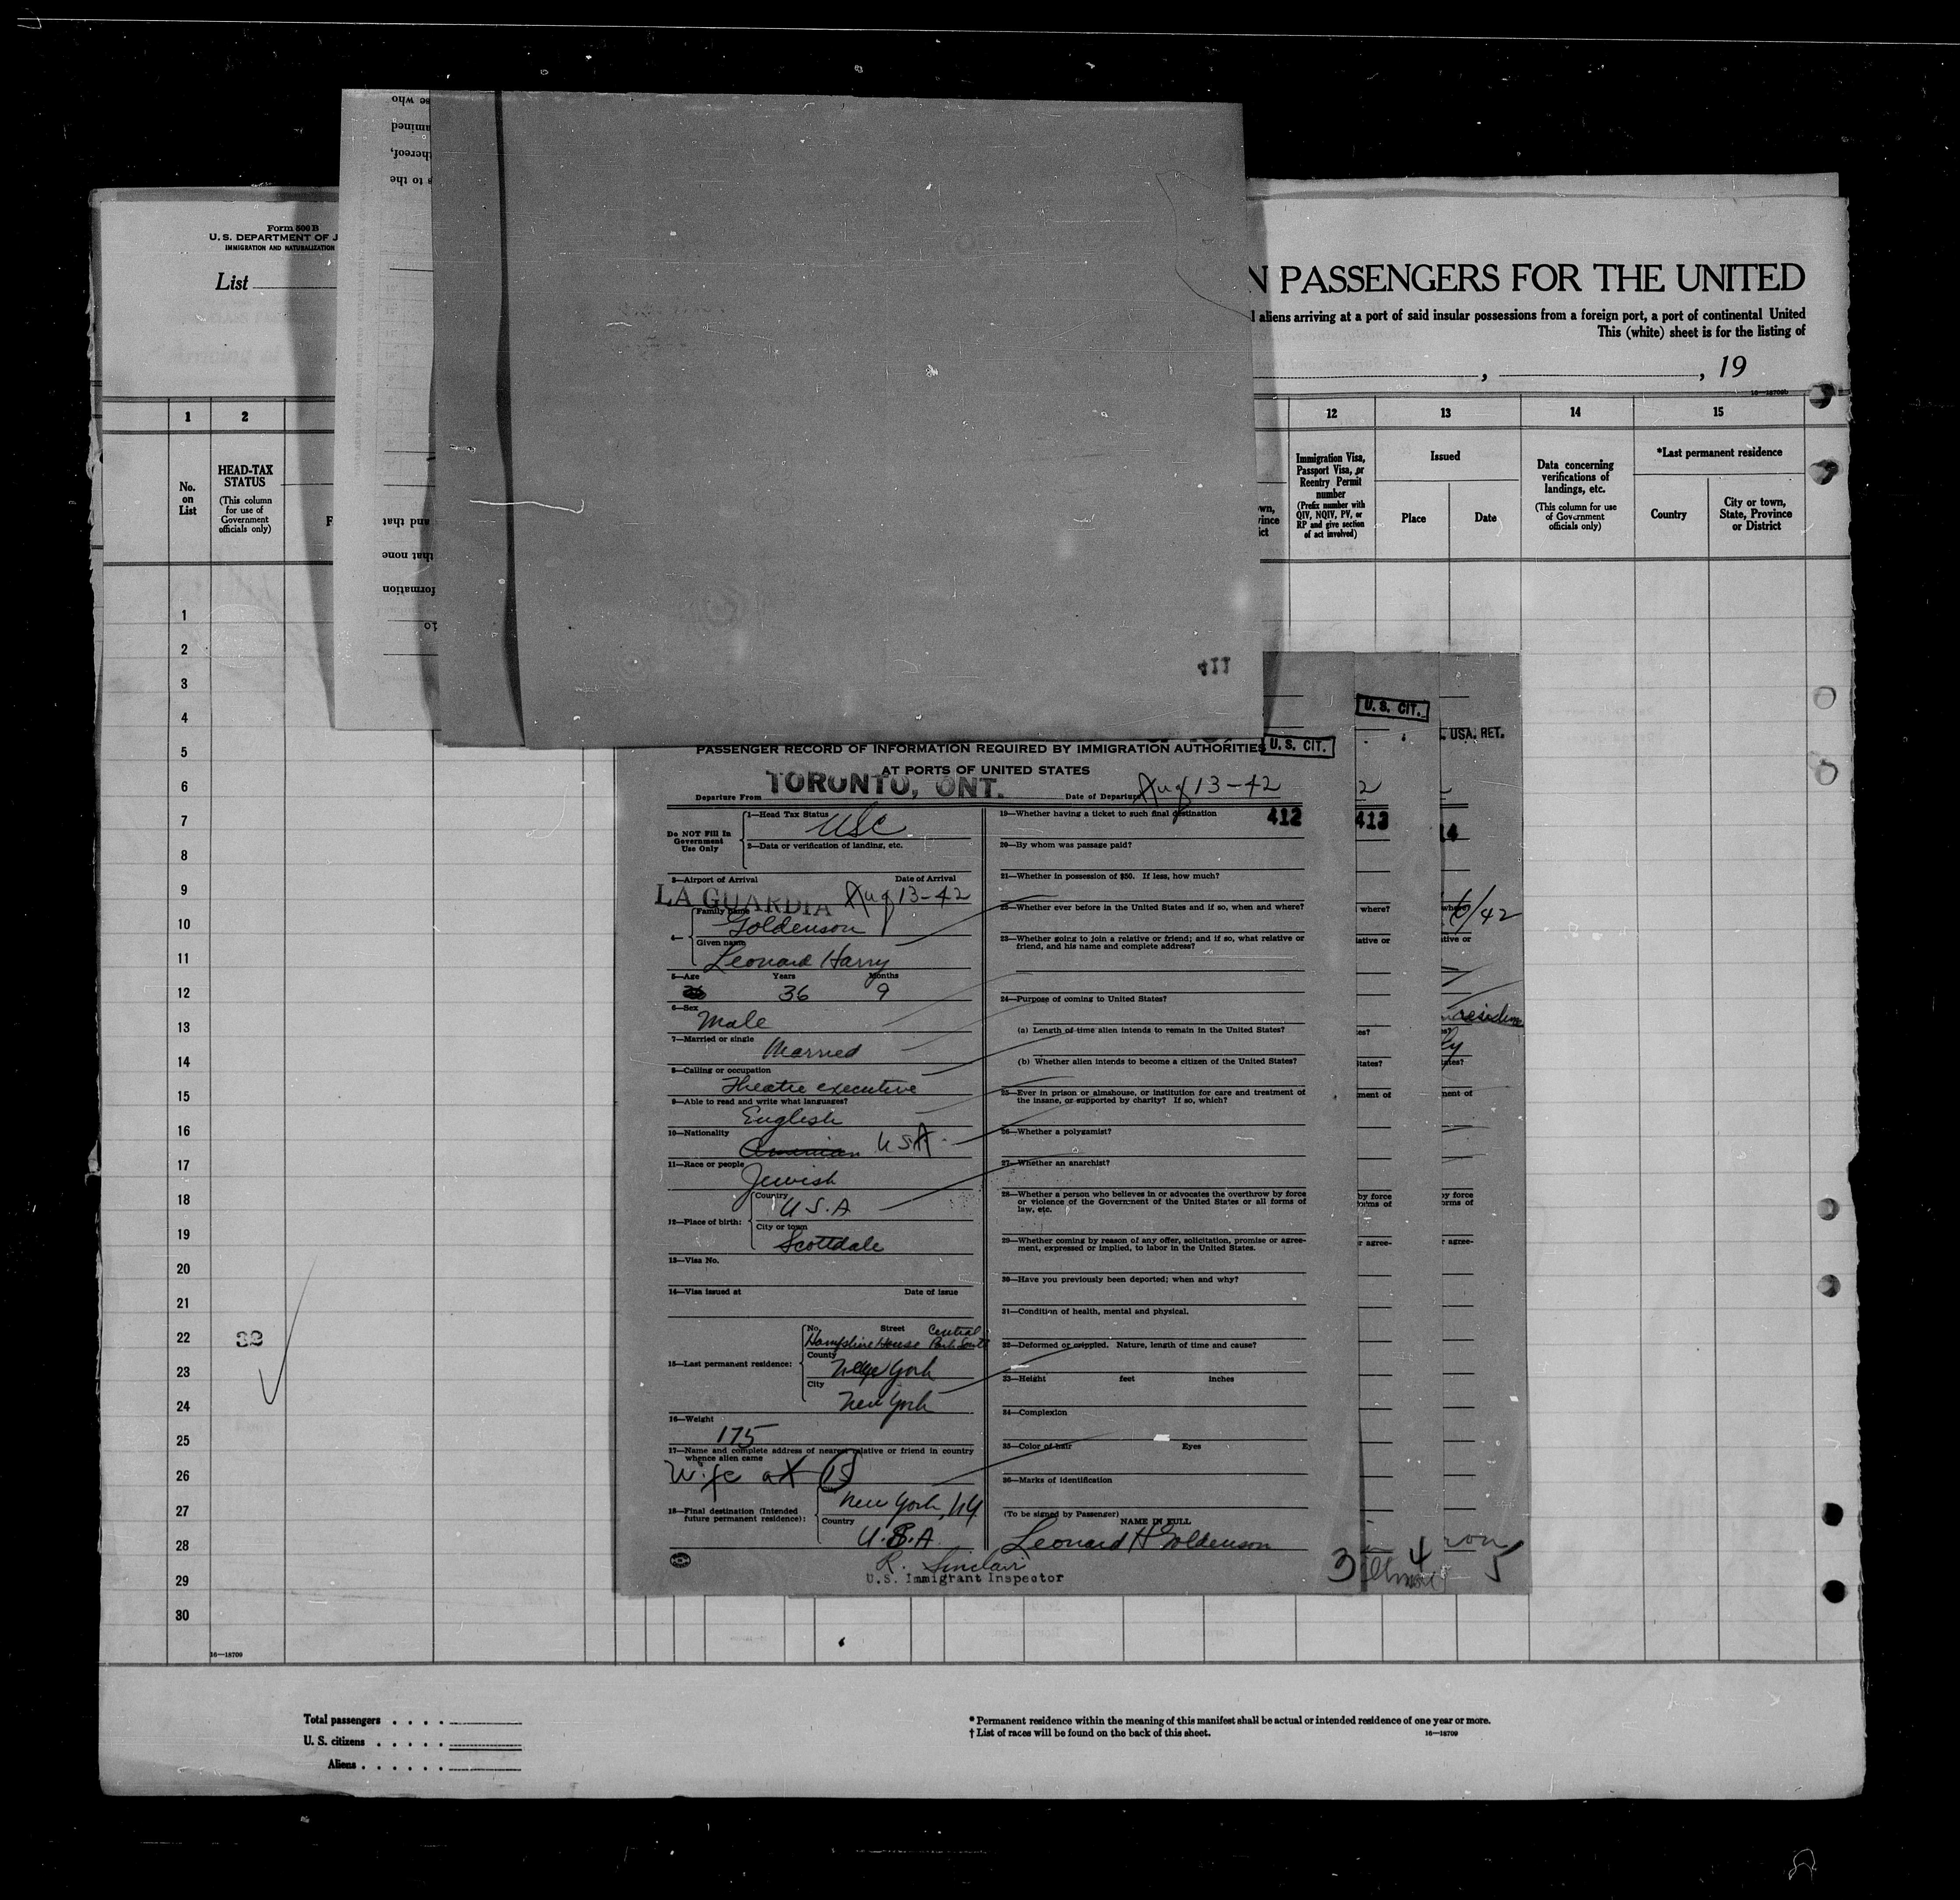 Form 500B
U. S. DEPARTMENT OF J
IMMIGRATION AND NATURALIZATION
List
N PASSENGERS FOR THE UNITED
l aliens arriving at a port of said insular possessions from a foreign port, a port of continental United
This (white) sheet is for the listing of
, , 19
16—18709b
1 2 12 13 14 15
No. on List
HEAD-TAX STATUS
(This column for use of Government officials only)
F
Immigration Visa, Passport Visa, or Reentry Permit number
(Prefix number with QIV, NQIV, PV, or RP and give section of act involved)
Issued
Place
Date
Data concerning verifications of landings, etc.
(This column for use of Government officials only)
*Last permanent residence
Country
City or town, State, Province or District
se who
amined
thereof,
s to the
and that
that none
formation
to
411
1
2
3
4
5
6
7
8
9
10
11
12
13
14
15
16
17
18
19
20
21
22
23
24
25
26
27
28
29
30
32
16—18709
PASSENGER RECORD OF INFORMATION REQUIRED BY IMMIGRATION AUTHORITIES
U. S. CIT.
AT PORTS OF UNITED STATES
Departure From TORONTO, ONT. Date of Departure Aug 13-42
Do NOT Fill In
Government
Use Only
1—Head Tax Status
USC
2—Data or verification of landing, etc.
3—Airport of Arrival Date of Arrival
LA GUARDIA Aug 13-42
4—
Family name
Goldenson
Given name
Leonard Harry
5—Age Years Months
36 9
6—Sex
Male
7—Married or single
Married
8—Calling or occupation
Theatre executive
9—Able to read and write what languages?
English
10—Nationality
USA
11—Race or people
Jewish
12—Place of birth:
Country
U.S.A
City or town
Scottdale
13—Visa No.
14—Visa issued at Date of issue
15—Last permanent residence:
No. Street
Hampshire House Central Park South
County
New York
City
New York
16—Weight
175
17—Name and complete address of nearest relative or friend in country
whence alien came
Wife at 15
18—Final destination (Intended
future permanent residence):
New York, NY
Country
U.S.A.
R. Sinclair
U.S. Immigrant Inspector
19—Whether having a ticket to such final destination
412
20—By whom was passage paid?
21—Whether in possession of $50. If less, how much?
22—Whether ever before in the United States and if so, when and where?
23—Whether going to join a relative or friend; and if so, what relative or
friend, and his name and complete address?
24—Purpose of coming to United States?
(a) Length of time alien intends to remain in the United States?
(b) Whether alien intends to become a citizen of the United States?
25—Ever in prison or almshouse, or institution for care and treatment of
the insane, or supported by charity? If so, which?
26—Whether a polygamist?
27—Whether an anarchist?
28—Whether a person who believes in or advocates the overthrow by force
or violence of the Government of the United States or all forms of
law, etc.
29—Whether coming by reason of any offer, solicitation, promise or agree-
ment, expressed or implied, to labor in the United States.
30—Have you previously been deported; when and why?
31—Condition of health, mental and physical.
32—Deformed or crippled. Nature, length of time and cause?
33—Height feet inches
34—Complexion
35—Color of hair Eyes
36—Marks of identification
(To be signed by Passenger)
NAME IN FULL
Leonard H Goldenson
3
U. S. CIT.
2
413
where?
lative or
es?
States?
ment of
by force
orms of
r agree-
4
USA. RET.
14
6/42
tive or
ates?
ent of
by force
orms of
r agree-
5
Total passengers
U. S. citizens
Aliens
* Permanent residence within the meaning of this manifest shall be actual or intended residence of one year or more.
† List of races will be found on the back of this sheet.
16—18709